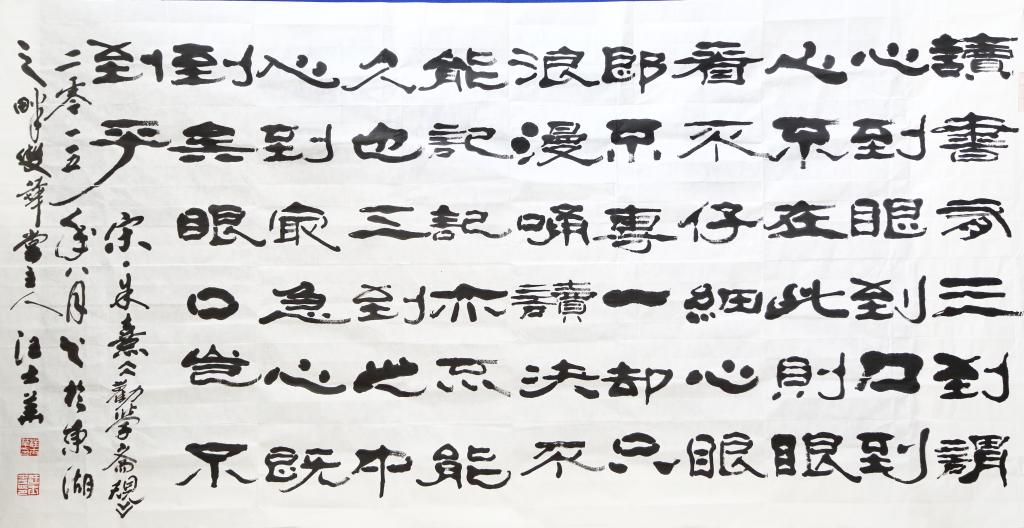 讀書有三到謂
心到眼到口到
心不在此則眼
看不仔細心眼
郎不專一却只
浪漫誦讀決不
能記記亦不能
久也三到此中
心到最急心既
到矣眼口豈不
到乎
宋·朱熹《勸學齋規》
二零一五年八月书於東湖
之畔堂主人汪士